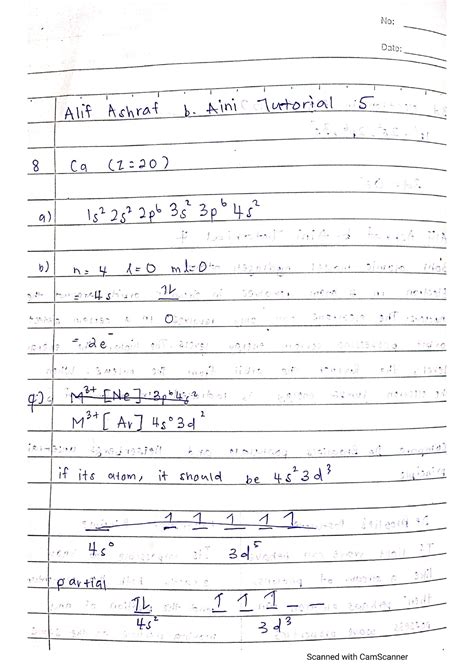 No:
Date:
Alif Ashraf b. Aini Tutorial 5
8 Ca (Z=20)
a) 1s² 2s² 2p⁶ 3s² 3p⁶ 4s²
b) n = 4 l = 0 ml = 0
= 4s ⥮
0
= 2e⁻
9) M³⁺ [Ne] 3p⁶ 4s²
M³⁺ [Ar] 4s⁰ 3d²
if its atom, it should be 4s² 3d³
1 1 1 1 1
4s⁰ 3d⁵
partial
⥮ 1 1 1
4s² 3d³
Scanned with CamScanner